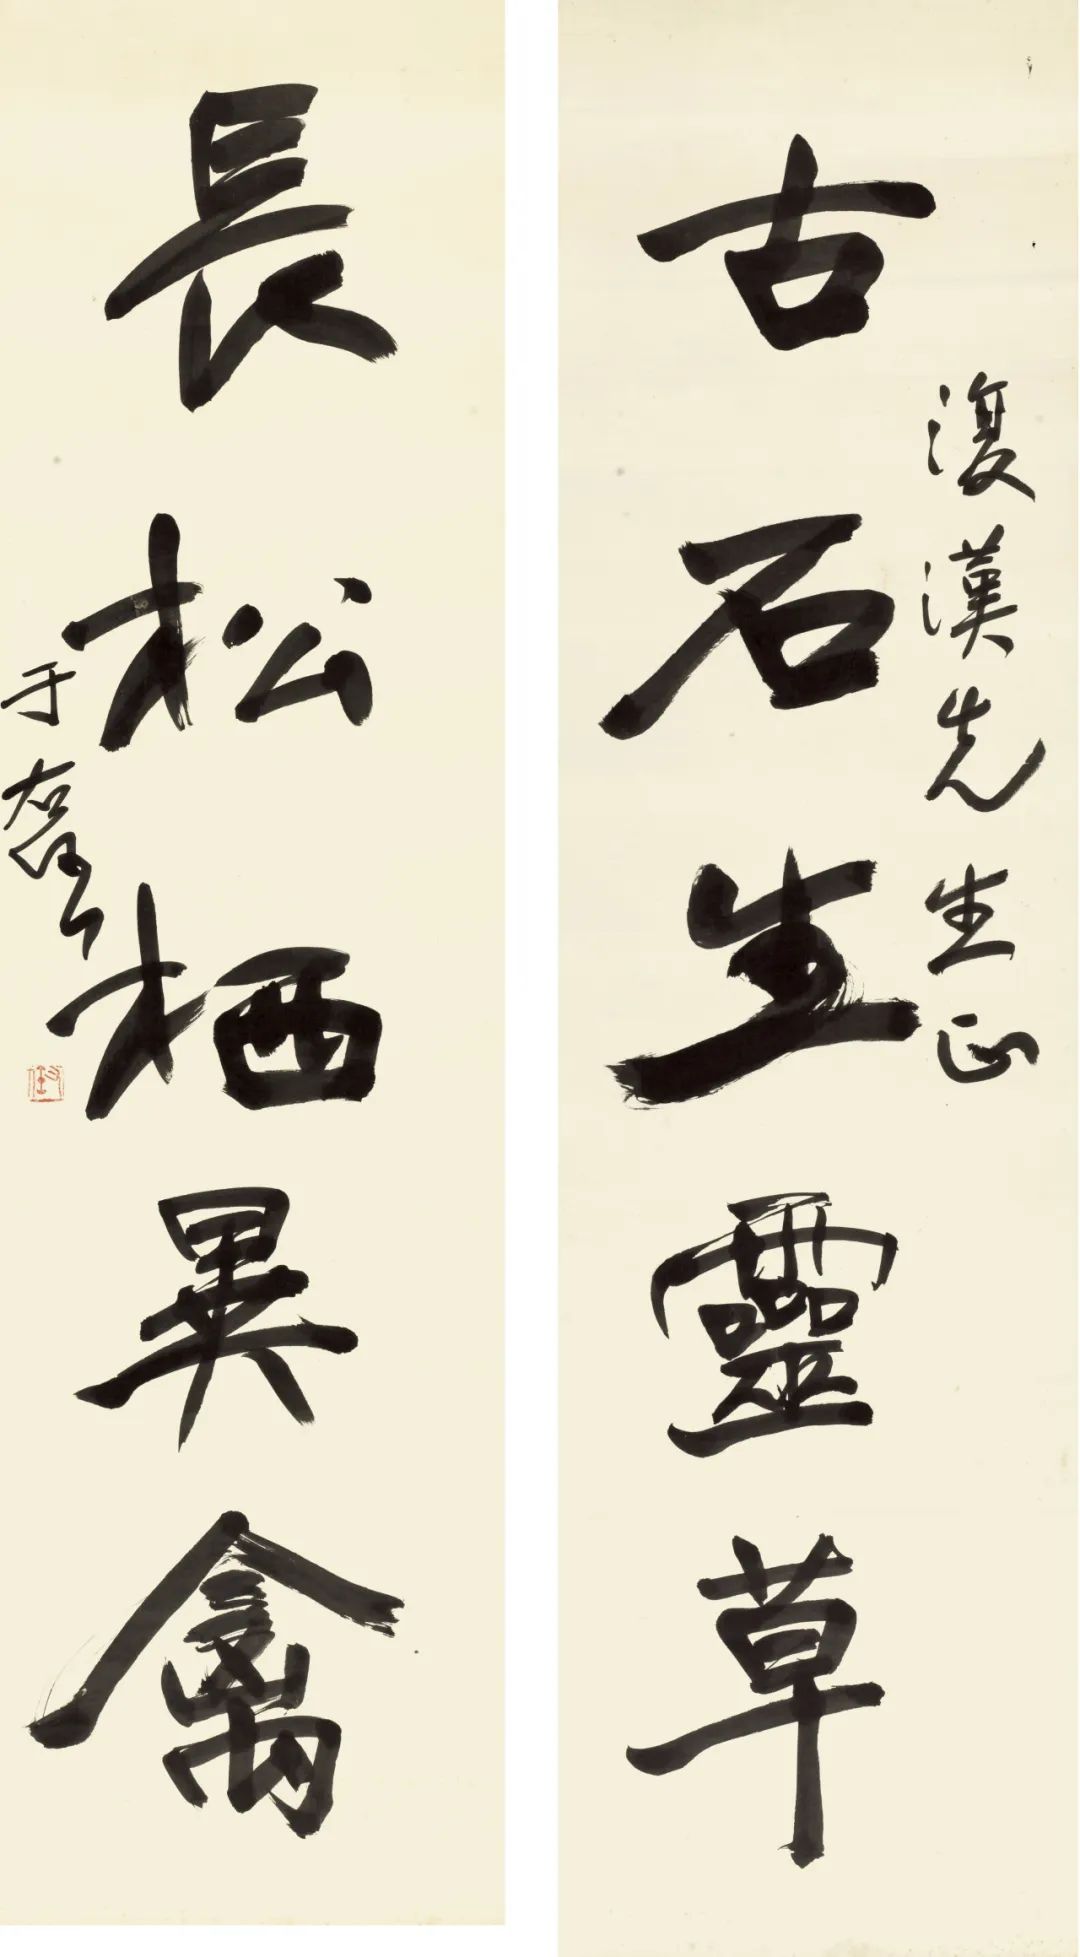 復漢先生正
古石生靈草
長松栖異禽
于右任
右任